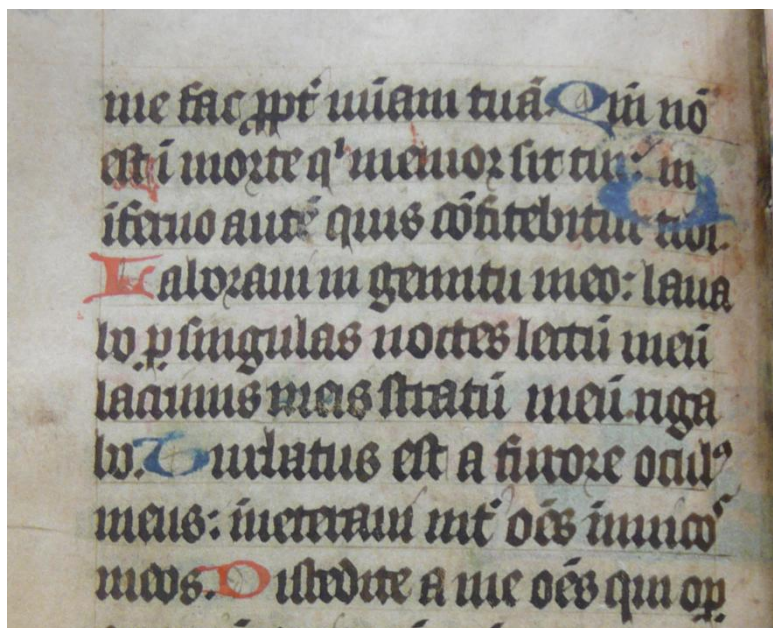 me fac ꝓpt̄ mīam tuā. Qm̄ nō
est ī morte qͥ memor sit tui: in
īferno autē quis cōfitebitur tibi.
Laboraui in gemitu meo: laua
bo ꝑ singulas noctes lectū meū
lacrimis meis stratū meū riga
bo. Turbatus est a furore oculꝰ
meus: inueteraui int̄ oēs inimicos
meos. Discedite a me oēs qui oꝑ